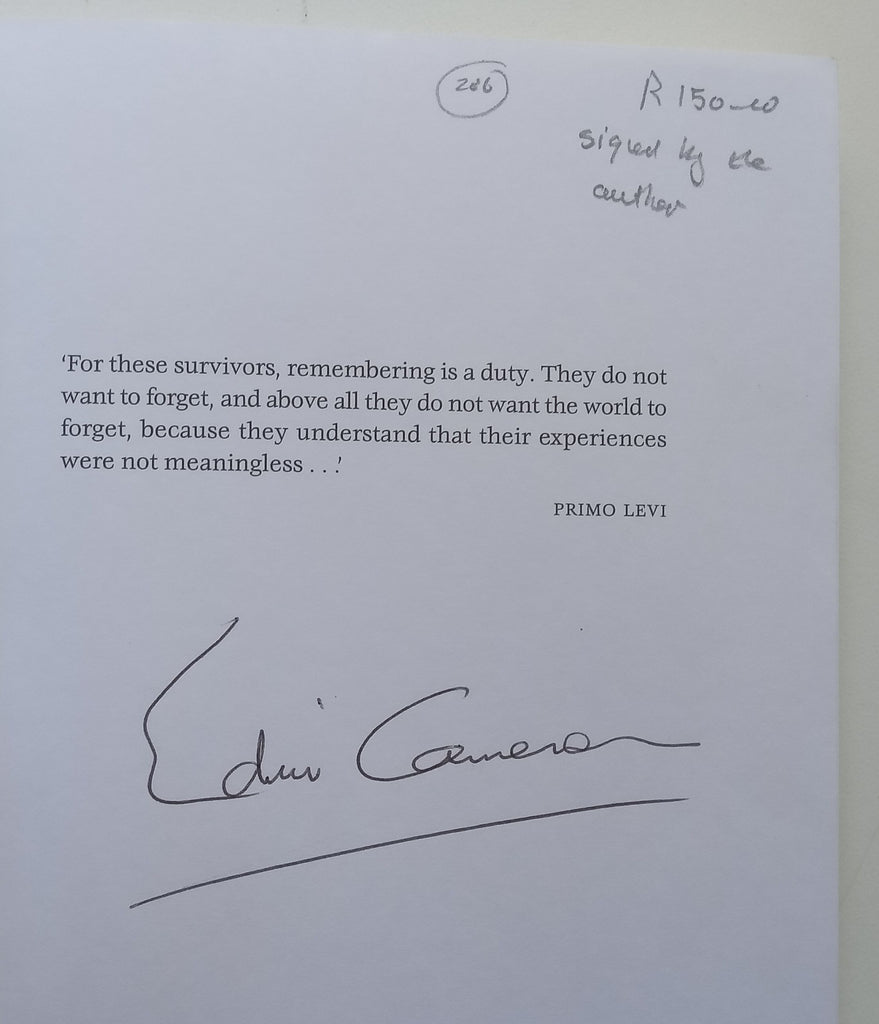 206
R 150-00
signed by the
author
‘For these survivors, remembering is a duty. They do not
want to forget, and above all they do not want the world to
forget, because they understand that their experiences
were not meaningless . . .’
PRIMO LEVI
Edwin Cameron